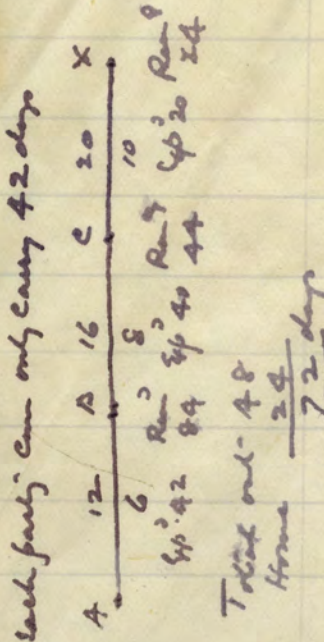 each party can only carry 42 days
A 12 B 16 C 20 X
6 8 10
Exp^d 42 Rem^g 84 Exp^d 40 Rem^g 44 Exp^d 20 Rem^g 24
Total out - 48
Home 24
72 days